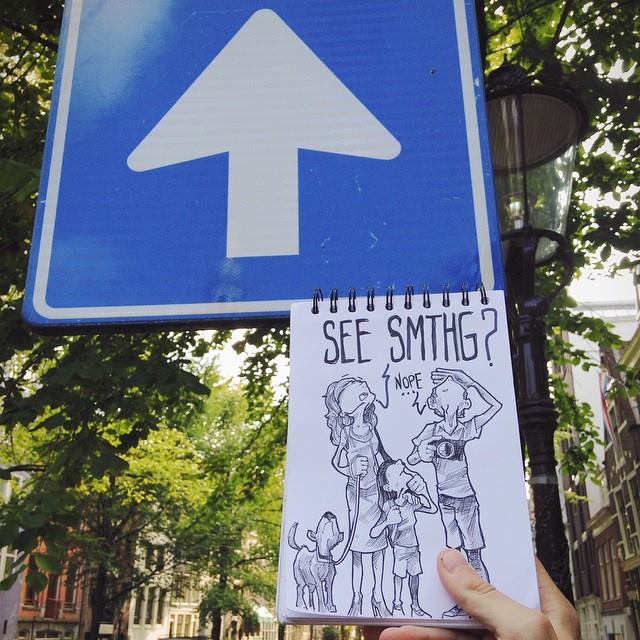 SEE SMTHG?
NOPE
...